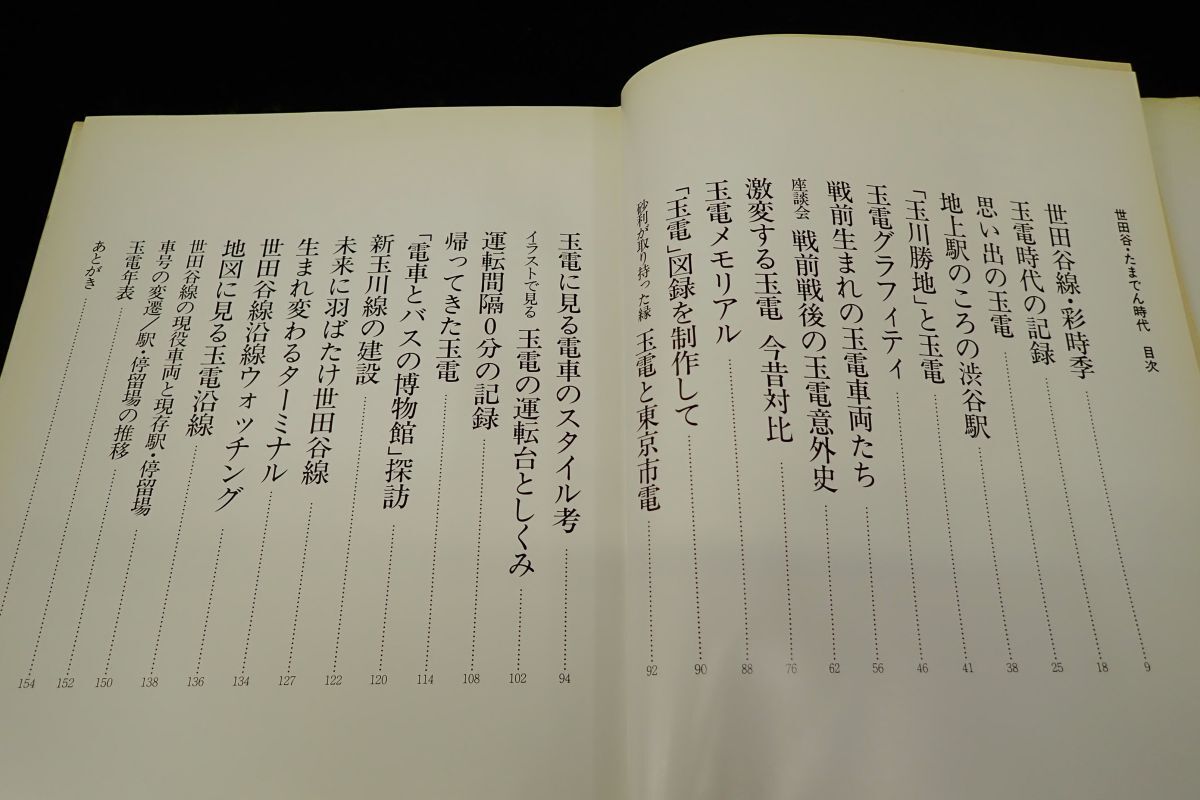 世田谷・たまでん時代 目次
世田谷線・彩時季 9
玉電時代の記録 18
思い出の玉電 25
地上駅のころの渋谷駅 38
「玉川勝地」と玉電 41
玉電グラフィティ 46
戦前生まれの玉電車両たち 56
座談会 戦前戦後の玉電意外史 62
激変する玉電 今昔対比 76
玉電メモリアル 88
「玉電」図録を制作して 90
砂利が取り持った縁 玉電と東京市電 92
玉電に見る電車のスタイル考 94
イラストで見る 玉電の運転台としくみ 102
運転間隔0分の記録 108
帰ってきた玉電 114
「電車とバスの博物館」探訪 120
新玉川線の建設 122
未来に羽ばたけ世田谷線 127
生まれ変わるターミナル 134
世田谷線沿線ウォッチング 136
地図に見る玉電沿線 138
世田谷線の現役車両と現存駅・停留場 150
車号の変遷/駅・停留場の推移 152
玉電年表 154
あとがき